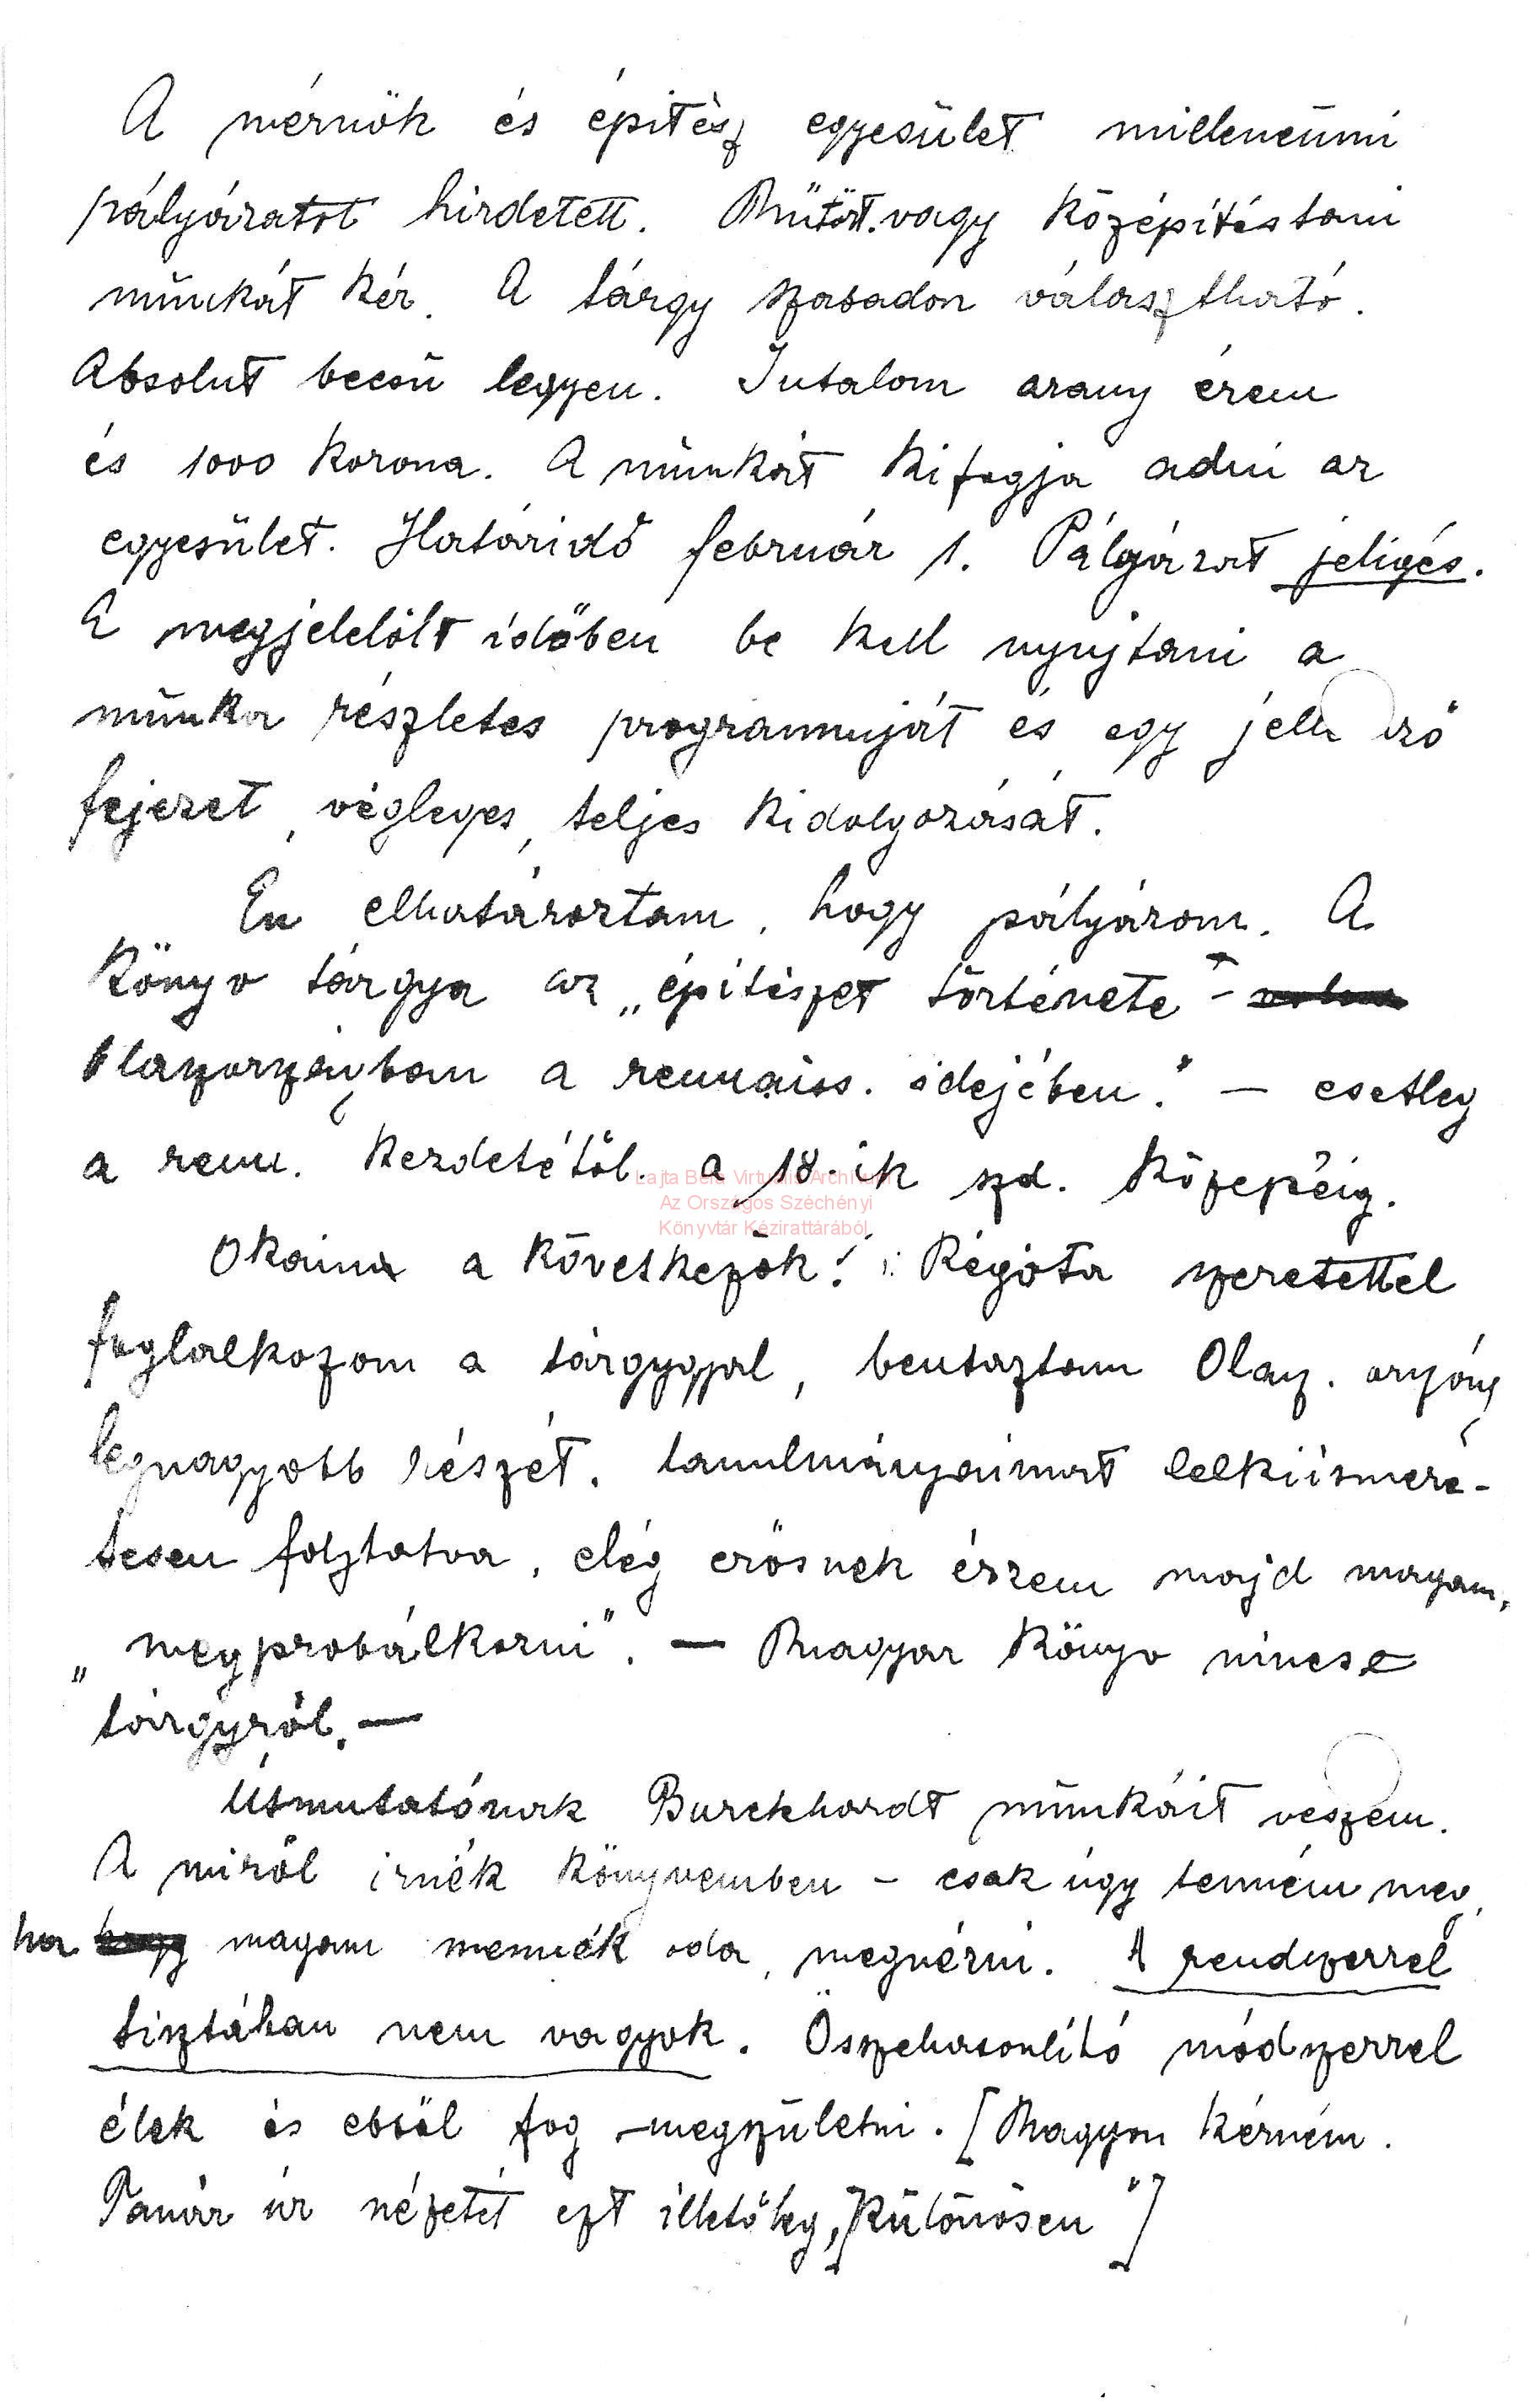 A mérnök és épitész egyesület milleneumi
pályázatot hirdetett. Műtört. vagy középítéstani
münkát kér. A tárgy szabadon választható.
Absolut becsü legyen. Jutalom arany érem
és 1000 korona. A münkát ki fogja adni az
egyesület. Határidő február 1. Pályázat jeligés.
A megjelölt időben be kell nyujtani a
münka részletes programmját és egy jellemző
fejezet, végleges, teljes kidolgozását.
Én elhatároztam, hogy pályázom. A
könyv tárgya az „épitészet története -
Olaszországban a rennaiss. idejében." — esetleg
a renn. kezdetétöl. a 18-ik szd. közepéig.
Okaim a következök: Régóta szeretettel
foglalkozom a tárgygyal, beutaztam Olasz. ország
legnagyobb részét. tanulmányaimat lelkiismere-
tesen folytatva, elég erösnek érzem majd magam,
„megprobálkozni". — Magyar könyv nincs e
tárgyról. —
Útmutatónak Burckhardt münkáit veszem.
A miröl irnék könyvemben - csak úgy tenném meg,
ha magam mennék oda, megnézni. A rendszerrel
tisztában nem vagyok. Összehasonlító módszerrel
élek és ebböl fog megszületni. [Nagyon kérném.
Tanár úr nézetét ezt illetőleg, „különösen"]
Lajta Béla Virtuális Archívum
Az Országos Széchényi
Könyvtár Kézirattárából